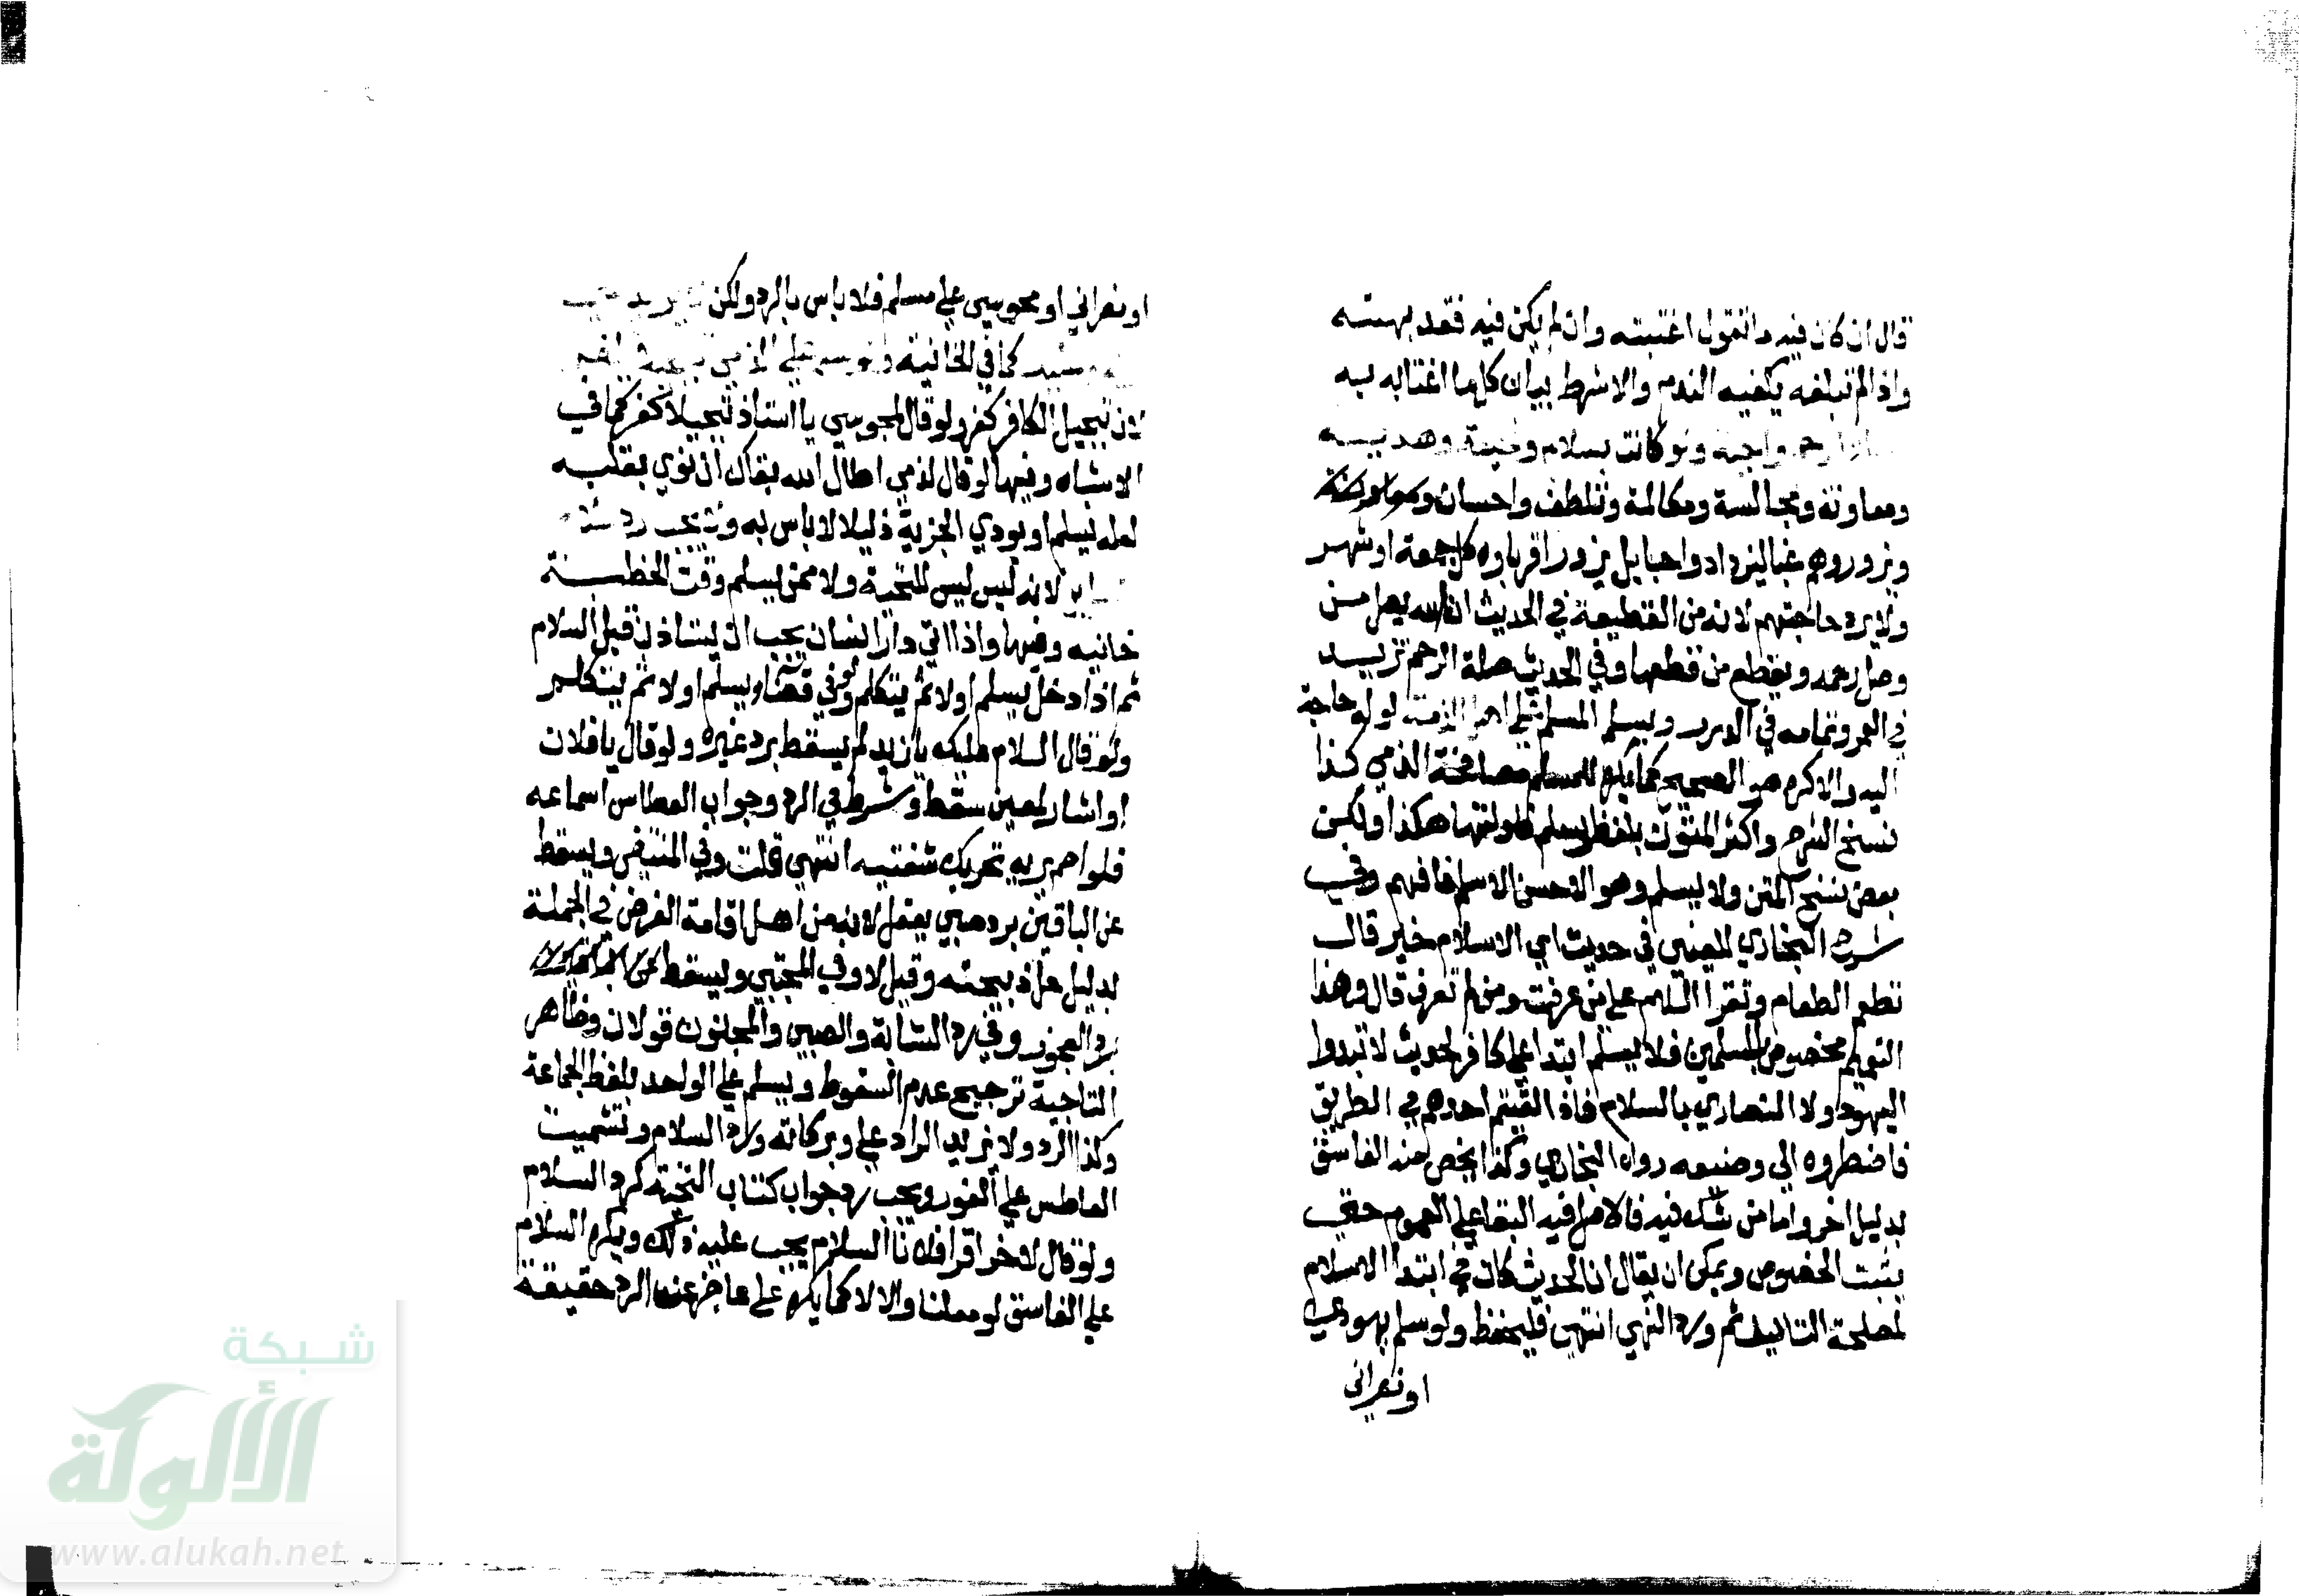 قال ان كان فيه ما تقول اغتبته وان لم يكن فيه فقد بهته
واذا لم تبلغه يكفيه الندم والا شرط بيان كل ما اغتابه به
واجبة ولو كانت بسلام وتحية وهدية
ومعاونة ومجالسة ومكالمة وتلطف واحسان
ويزوروهم غبا ليزداد واحبا بل يزور اقرباوه كل جمعة او شهر
ولا يرد حاجتهم لانه من القطيعة في الحديث ان الله يصل من
وصل رحمه ويقطع من قطعها وفي الحديث صلة الرحم تزيد
في العمر وتمامه في الدرر ويسلم المسلم على اهل الذمة لو له حاجة
اليه والا كره هو الصحيح كما يكره للمسلم مصافحة الذمي كذا
نسخ الشرح واكثر المتون بلفظ ويسلم فاولتها هكذا ولكن
بعض نسخ المتن ولا يسلم وهو الاحسن الاسلم فافهم وفي
شرح البخاري للعيني في حديث اي الاسلام خير قال
تطعم الطعام وتقرا السلام على من عرفت ومن لم تعرف قال وهذا
التعميم مخصوص بالمسلمين فلا يسلم ابتدا على كافر لحديث لا تبدوا
اليهود ولا النصاري بالسلام فاذا لقيتم احدهم في الطريق
فاضطروه الي وضيعه رواه البخاري وكذا يخص منه الفاسق
بدليل اخر واما من شك فيه فالاصل فيه البقا على العموم حتي
يثبت الخصوص ويمكن ان يقال ان الحديث كان في ابتدا السلام
لمصلحة التاليف ثم ورد النهي انتهي فليحفظ ولو سلم يهودي
او نصراني
او نصراني او مجوسي علي مسلم فلا باس بالرد ولكن
كما في الخانية ولو سلم على الذمي
لان تبجيل الكافر كفر ولو قال لمجوسي يا استاذ تبجيلا كفر كما في
الاشباه وفيها لو قال لذمي اطال الله بقاك ان نوي بقلبه
لعله يسلم او يودي الجزية ذليلا لا باس به
لانه ليس للتحية ولا ممن يسلم وقت الخطبة
خانيه وفيها واذا اتي دار انسان يجب ان يستاذن قبل السلام
ثم اذا دخل يسلم اولا ثم يتكلم ولو في فضا يسلم اولا ثم يتكلم
ولو قال السلام عليك يا زيد لم يسقط برد غيره ولو قال يا فلان
او اشار لمعين سقط وشرط في الرد وجواب العطاس اسماعه
فلو اصم يريه تحريك شفتيه انتهي قلت وفي المبتغى ويسقط
عن الباقين برد صبي يعقل لانه من اهل اقامة الفرض في الجملة
بدليل حل ذبيحته وقيل لا وفي المجتبي ويسقط
برد العجوز وفي رد الشابة والصبي والمجنون قولان وظاهر
التاجية ترجيح عدم السقوط ويسلم علي الواحد بلفظ الجماعة
وكذا الرد ولا يزيد الراد علي وبركاته ورد السلام وتشميت
العاطس علي الفور ويجب رد جواب كتاب التحية كرد السلام
ولو قال لاخر اقرا فلانا السلام يجب عليه ذلك ويكره السلام
علي الفاسق لو معلنا والا لا كما يكره على عاجز عن الرد حقيقة
شبكة
الألوكة
www.alukah.net